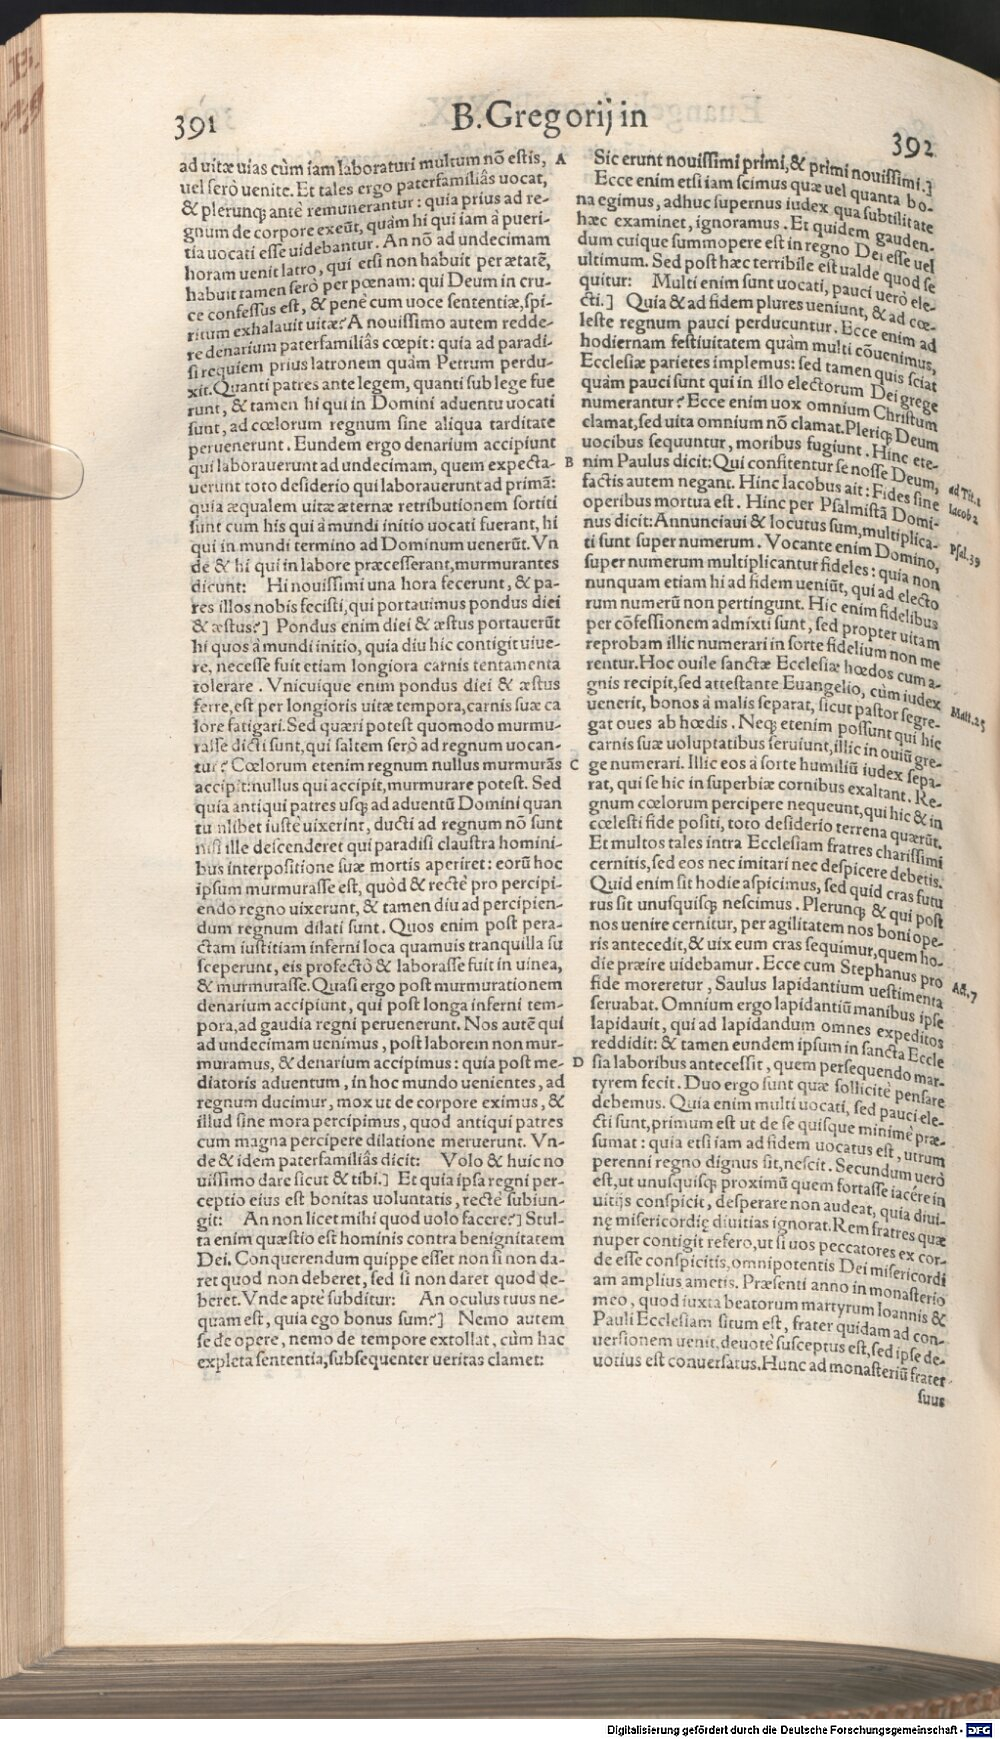 391
B. Gregorij in
392
ad uitæ uias cùm iam laboraturi multum nō estis,
uel serò uenite. Et tales ergo paterfamiliâs uocat,
& plerunq; antè remunerantur : quia prius ad re-
gnum de corpore exeūt, quàm hi qui iam à pueri-
tia uocati esse uidebantur. An nō ad undecimam
horam uenit latro, qui etsi non habuit per ætatē,
habuit tamen serò per pœnam: qui Deum in cru-
ce confessus est, & penè cum uoce sententiæ, spi-
ritum exhalauit uitæ? A nouissimo autem redde-
re denarium paterfamiliâs cœpit: quia ad paradi-
si requiem prius latronem quàm Petrum perdu-
xit. Quanti patres ante legem, quanti sub lege fue
runt, & tamen hi qui in Domini aduentu uocati
sunt, ad cœlorum regnum sine aliqua tarditate
peruenerunt. Eundem ergo denarium accipiunt
qui laborauerunt ad undecimam, quem expecta-
uerunt toto desiderio qui laborauerunt ad primā:
quia æqualem uitæ æternæ retributionem sortiti
sunt cum his qui à mundi initio uocati fuerant, hi
qui in mundi termino ad Dominum uenerūt. Vn
de & hi qui in labore præcesserant, murmurantes
dicunt: Hi nouissimi una hora fecerunt, & pa-
res illos nobis fecisti, qui portauimus pondus diei
& æstus?] Pondus enim diei & æstus portauerūt
hi quos à mundi initio, quia diu hic contigit uiue-
re, necesse fuit etiam longiora carnis tentamenta
tolerare. Vnicuique enim pondus diei & æstus
ferre, est per longioris uitæ tempora, carnis suæ ca
lore fatigari. Sed quæri potest quomodo murmu-
rasse dicti sunt, qui saltem serò ad regnum uocan-
tur? Cœlorum etenim regnum nullus murmurās
accipit: nullus qui accipit, murmurare potest. Sed
quia antiqui patres usq; ad aduentū Domini quan
tu nlibet iustè uixerint, ducti ad regnum nō sunt
nisi ille descenderet qui paradisi claustra homini-
bus interpositione suæ mortis aperiret: eorū hoc
ipsum murmurasse est, quòd & rectè pro percipi-
endo regno uixerunt, & tamen diu ad percipien-
dum regnum dilati sunt. Quos enim post pera-
ctam iustitiam inferni loca quamuis tranquilla su
sceperunt, eis profectò & laborasse fuit in uinea,
& murmurasse. Quasi ergo post murmurationem
denarium accipiunt, qui post longa inferni tem-
pora, ad gaudia regni peruenerunt. Nos autē qui
ad undecimam uenimus, post laborem non mur-
muramus, & denarium accipimus: quia post me-
diatoris aduentum, in hoc mundo uenientes, ad
regnum ducimur, mox ut de corpore eximus, &
illud sine mora percipimus, quod antiqui patres
cum magna percipere dilatione meruerunt. Vn-
de & idem paterfamiliâs dicit: Volo & huic no
uissimo dare sicut & tibi.] Et quia ipsa regni per-
ceptio eius est bonitas uoluntatis, rectè subiun-
git: An non licet mihi quod uolo facere?] Stul-
ta enim quæstio est hominis contra benignitatem
Dei. Conquerendum quippe esset non si non da-
ret quod non deberet, sed si non daret quod de-
beret. Vnde aptè subditur: An oculus tuus ne-
quam est, quia ego bonus sum?] Nemo autem
se de opere, nemo de tempore extollat, cùm hac
expleta sententia, subsequenter ueritas clamet:
A
B
C
D
Sic erunt nouissimi primi, & primi nouissimi.]
Ecce enim etsi iam scimus quæ uel quanta bo-
na egimus, adhuc supernus iudex qua subtilitate
hæc examinet, ignoramus. Et quidem gauden-
dum cuique summopere est in regno Dei esse uel
ultimum. Sed post hæc terribile est ualde quod se
quitur: Multi enim sunt uocati, pauci uerò ele-
cti.] Quia & ad fidem plures ueniunt, & ad cœ-
leste regnum pauci perducuntur. Ecce enim ad
hodiernam festiuitatem quàm multi cōuenimus,
Ecclesiæ parietes implemus: sed tamen quis sciat
quàm pauci sunt qui in illo electorum Dei grege
numerantur? Ecce enim uox omnium Christum
clamat, sed uita omnium nō clamat. Pleriq; Deum
uocibus sequuntur, moribus fugiunt. Hinc ete-
nim Paulus dicit: Qui confitentur se nosse Deum,
factis autem negant. Hinc Iacobus ait: Fides sine
operibus mortua est. Hinc per Psalmistā Domi-
nus dicit: Annunciaui & locutus sum, multiplica-
ti sunt super numerum. Vocante enim Domino,
super numerum multiplicantur fideles: quia non
nunquam etiam hi ad fidem ueniūt, qui ad electo
rum numerū non pertingunt. Hic enim fidelibus
per cōfessionem admixti sunt, sed propter uitam
reprobam illic numerari in sorte fidelium non me
rentur. Hoc ouile sanctæ Ecclesiæ hœdos cum a-
gnis recipit, sed attestante Euangelio, cùm iudex
uenerit, bonos à malis separat, sicut pastor segre-
gat oues ab hœdis. Neq; etenim possunt qui hic
carnis suæ uoluptatibus seruiunt, illic in ouiū gre-
ge numerari. Illic eos à sorte humiliū iudex sepa-
rat, qui se hic in superbiæ cornibus exaltant. Re-
gnum cœlorum percipere nequeunt, qui hic & in
cœlesti fide positi, toto desiderio terrena quærūt.
Et multos tales intra Ecclesiam fratres charissimi
cernitis, sed eos nec imitari nec despicere debetis.
Quid enim sit hodie aspicimus, sed quid cras futu
rus sit unusquisq; nescimus. Plerunq; & qui post
nos uenire cernitur, per agilitatem nos boni ope-
ris antecedit, & uix eum cras sequimur, quem ho-
die præire uidebamur. Ecce cum Stephanus pro
fide moreretur, Saulus lapidantium uestimenta
seruabat. Omnium ergo lapidantiū manibus ipse
lapidauit, qui ad lapidandum omnes expeditos
reddidit: & tamen eundem ipsum in sancta Eccle
sia laboribus antecessit, quem persequendo mar-
tyrem fecit. Duo ergo sunt quæ sollicitè pensare
debemus. Quia enim multi uocati, sed pauci ele-
cti sunt, primum est ut de se quisque minimè præ-
sumat: quia etsi iam ad fidem uocatus est, utrum
perenni regno dignus sit, nescit. Secundum uerò
est, ut unusquisq; proximū quem fortasse iacére in
uitijs conspicit, desperare non audeat, quia diui-
nę misericordię diuitias ignorat. Rem fratres quæ
nuper contigit refero, ut si uos peccatores ex cor-
de esse conspicitis, omnipotentis Dei misericordi
am amplius ametis. Præsenti anno in monasterio
meo, quod iuxta beatorum martyrum Ioannis &
Pauli Ecclesiam situm est, frater quidam ad con-
uersionem uenit, deuotè susceptus est, sed ipse de-
uotius est conuersatus. Hunc ad monasteriū frater
suus
ad Tit. 1
Iacob 2
Psal. 39
Matt. 25
Act. 7
Digitalisierung gefördert durch die Deutsche Forschungsgemeinschaft - DFG